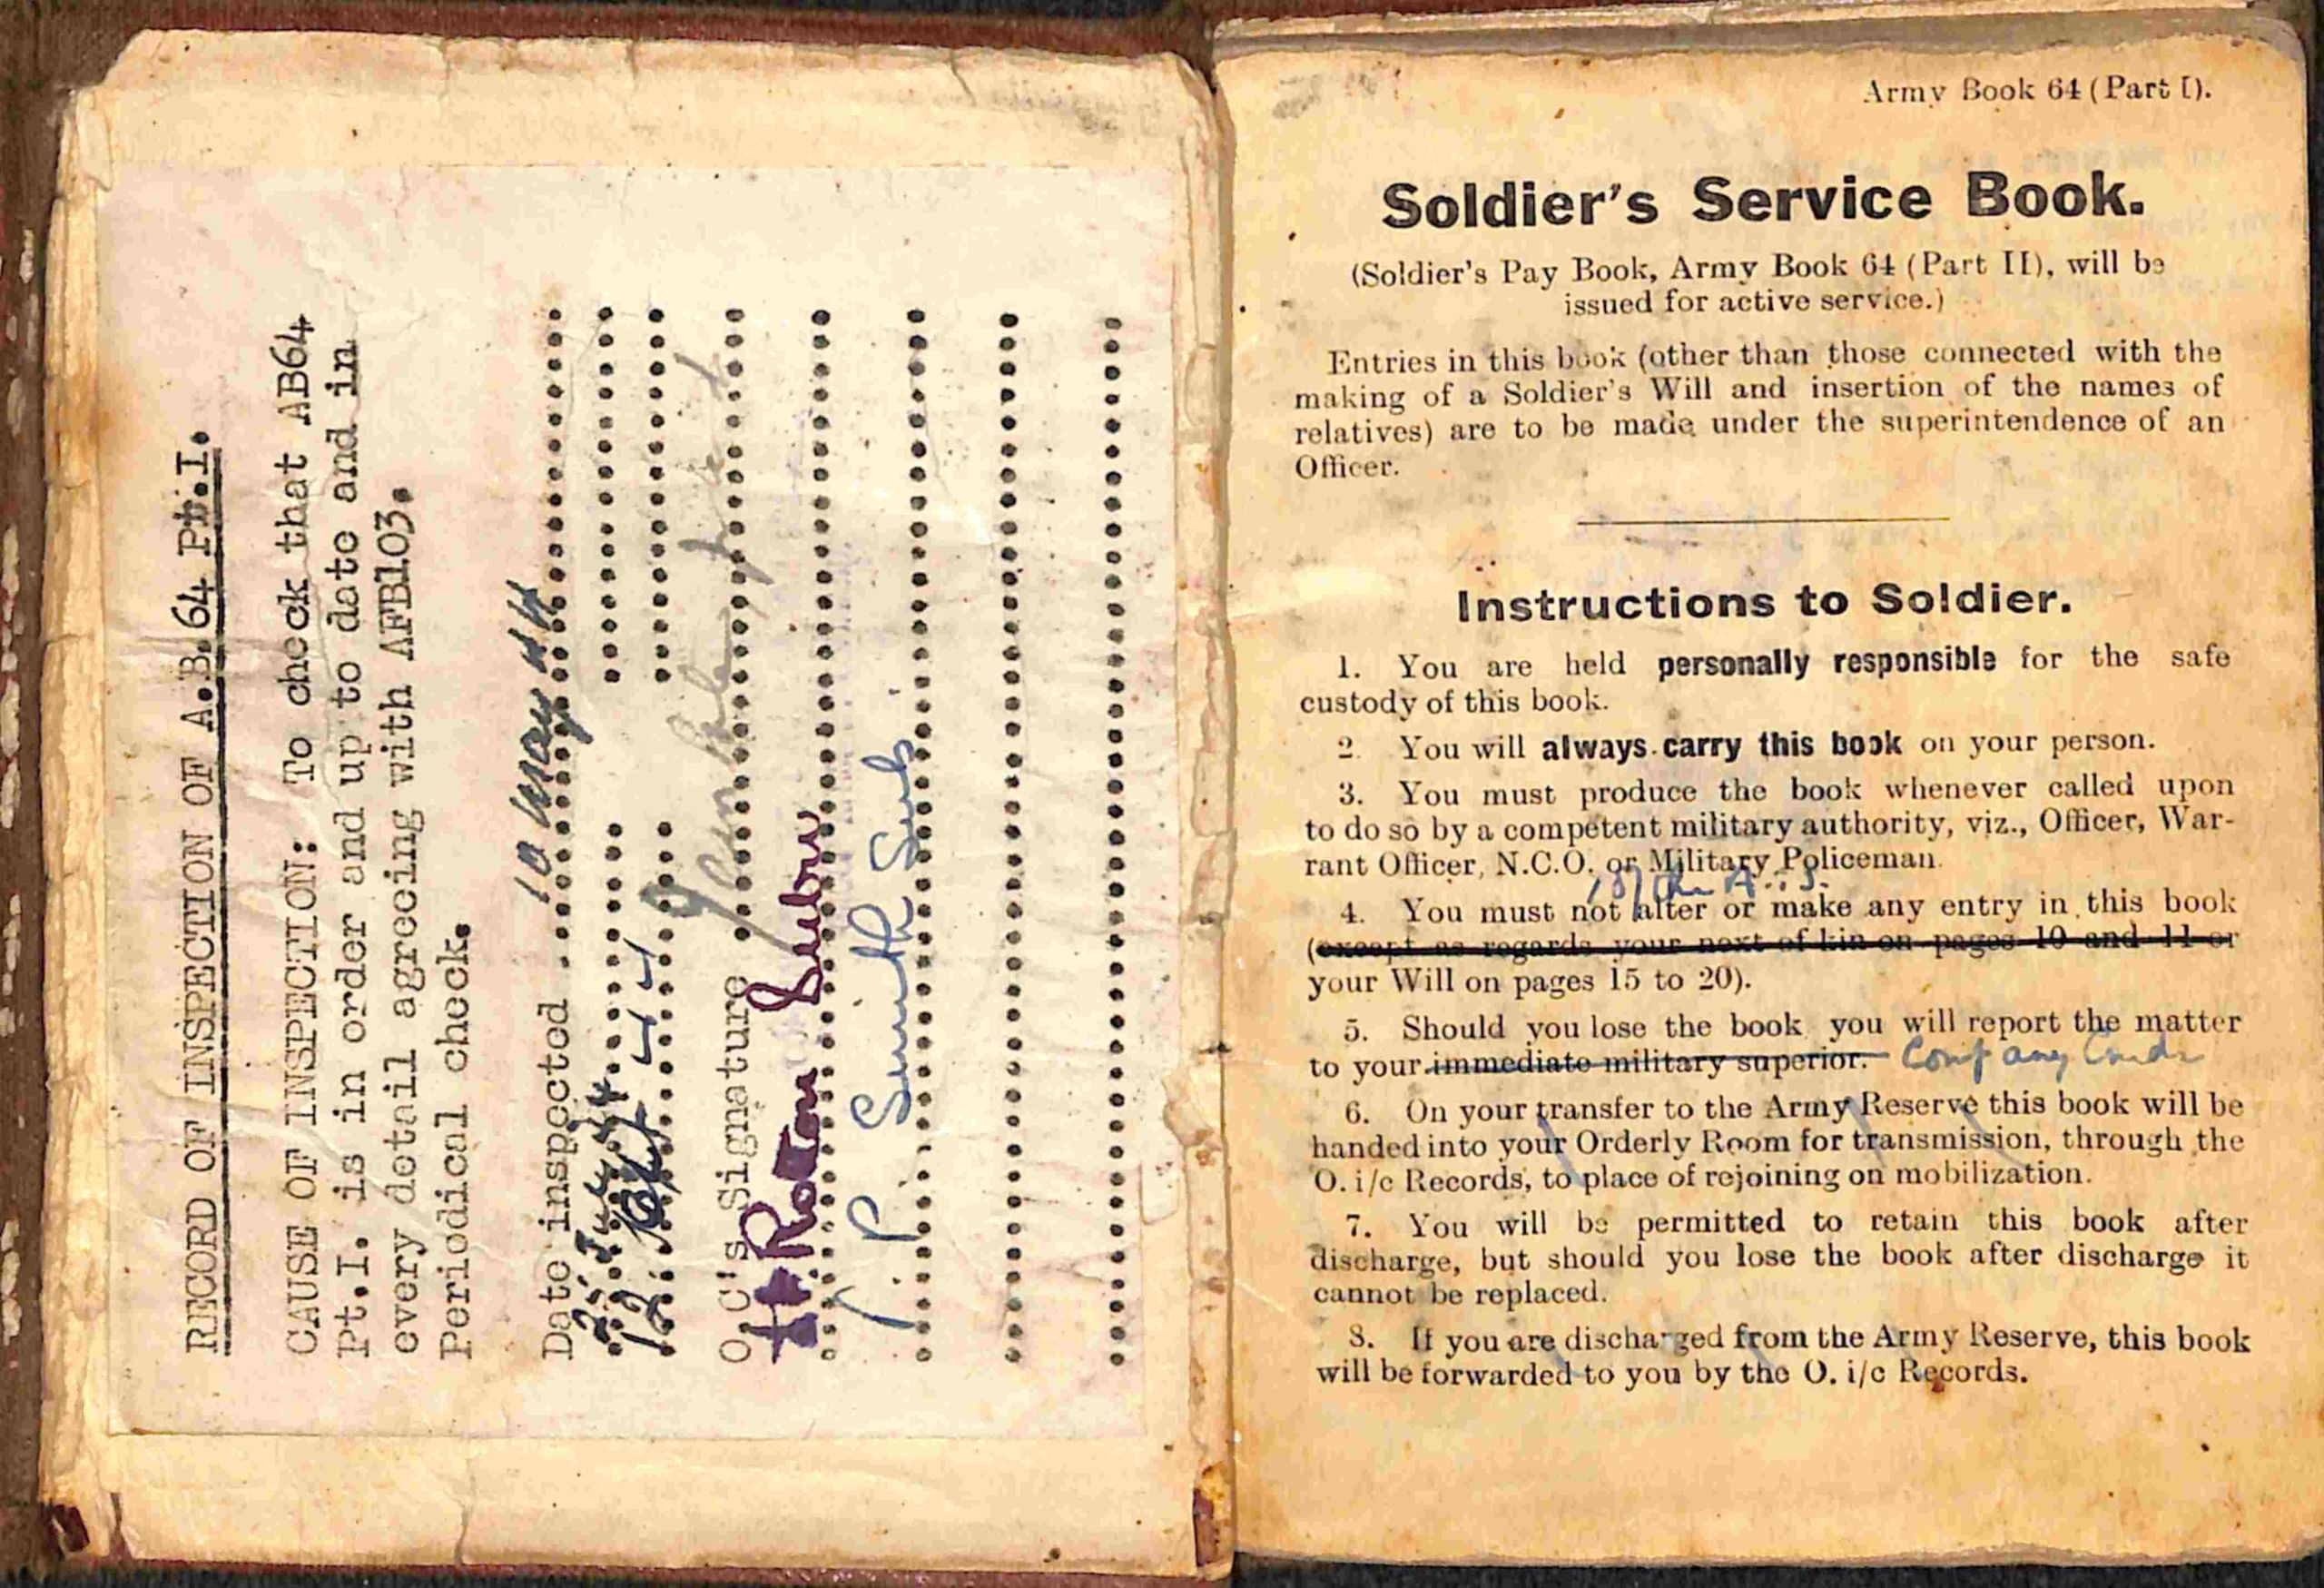 RECORD OF INSPECTION OF A.B.64 Pt.I.
CAUSE OF INSPECTION: To check that AB64
Pt.I. is in order and up to date and in
every detail agreeing with AFB103.
Periodical check.
Date inspected 10 May 44
O.C's Signature
Smith
Army Book 64 (Part I).
Soldier's Service Book.
(Soldier's Pay Book, Army Book 64 (Part II), will be
issued for active service.)
Entries in this book (other than those connected with the
making of a Soldier's Will and insertion of the names of
relatives) are to be made under the superintendence of an
Officer.
Instructions to Soldier.
1. You are held personally responsible for the safe
custody of this book.
2. You will always carry this book on your person.
3. You must produce the book whenever called upon
to do so by a competent military authority, viz., Officer, War-
rant Officer, N.C.O. or Military Policeman.
4. You must not alter or make any entry in this book
(except as regards your next of kin on pages 10 and 11 or
your Will on pages 15 to 20).
5. Should you lose the book you will report the matter
to your immediate military superior. Company
6. On your transfer to the Army Reserve this book will be
handed into your Orderly Room for transmission, through the
O. i/c Records, to place of rejoining on mobilization.
7. You will be permitted to retain this book after
discharge, but should you lose the book after discharge it
cannot be replaced.
8. If you are discharged from the Army Reserve, this book
will be forwarded to you by the O. i/c Records.